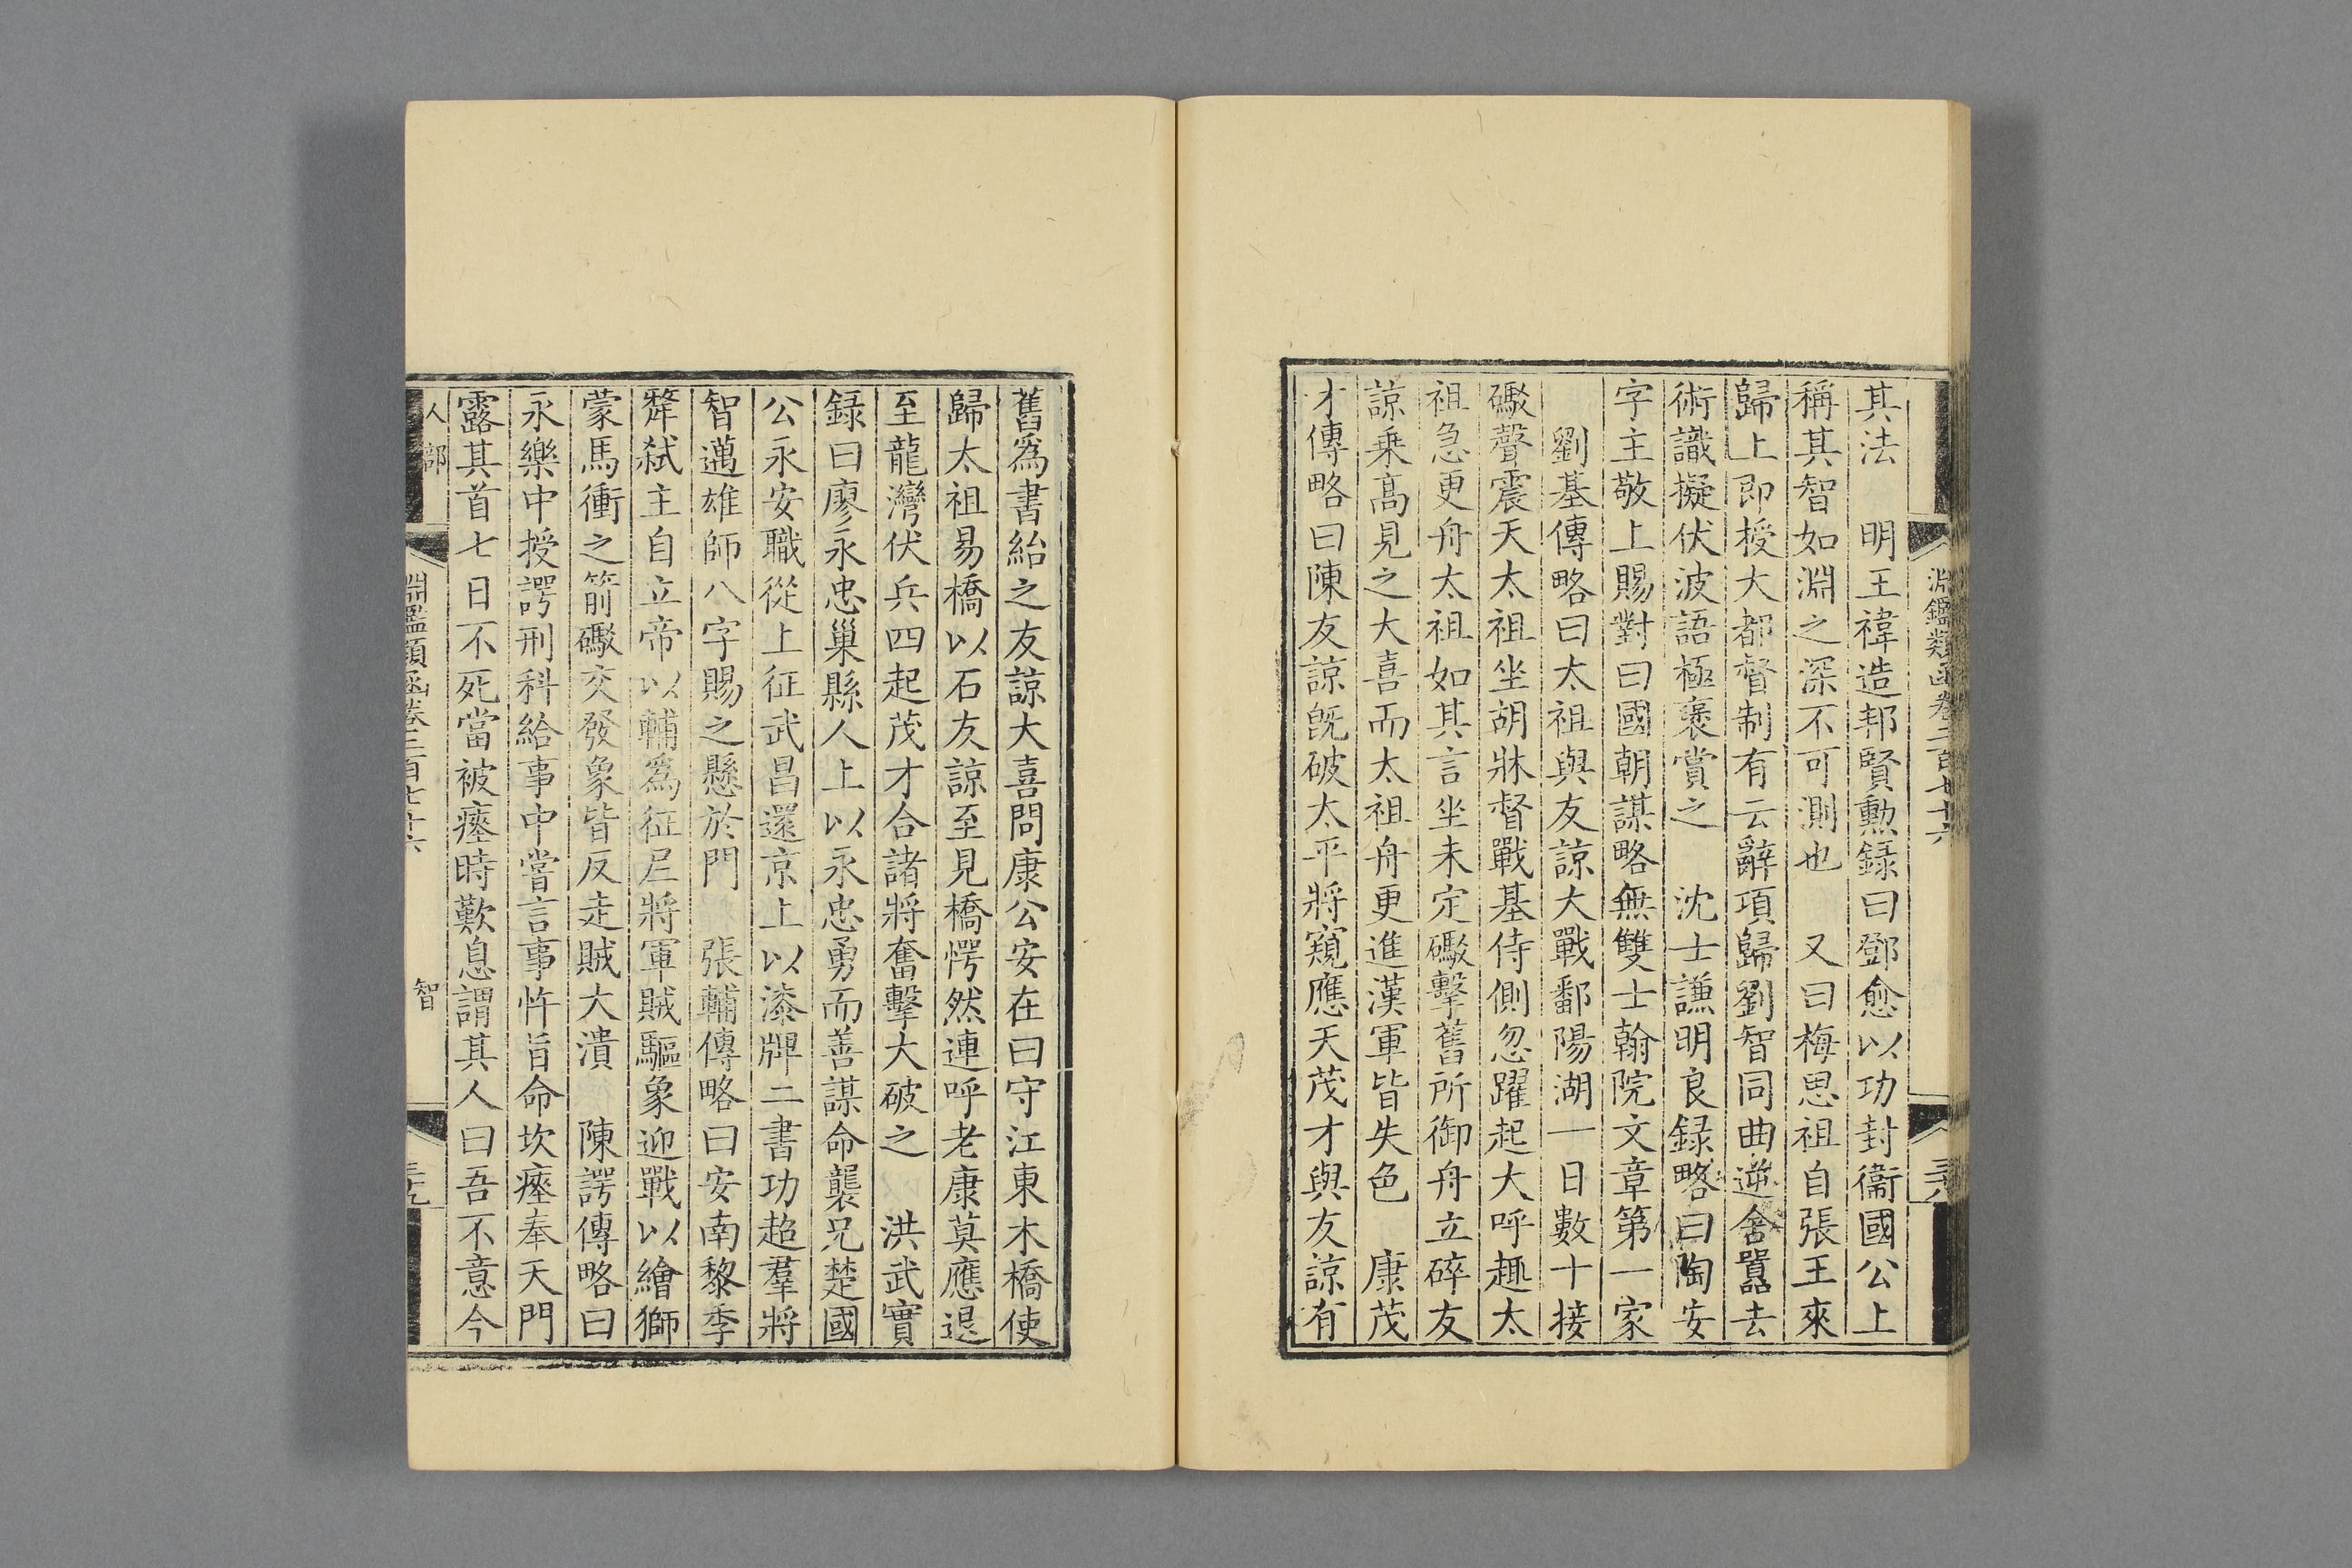 淵鑑類函卷二百七十六
三八
其法　明王禕造邦賢勳録曰鄧愈以功封衞國公上
稱其智如淵之深不可測也　又曰梅思祖自張王來
歸上即授大都督制有云辭項歸劉智同曲逆舍囂去
術識擬伏波語極褒賞之　沈士謙明良録略曰陶安
字主敬上賜對曰國朝謀略無雙士翰院文章第一家
劉基傳略曰太祖與友諒大戰鄱陽湖一日數十接
礮聲震天太祖坐胡牀督戰基侍側忽躍起大呼趣太
祖急更舟太祖如其言坐未定礮擊舊所御舟立碎友
諒乗高見之大喜而太祖舟更進漢軍皆失色　康茂
才傳略曰陳友諒旣破太平將窺應天茂才與友諒有
舊爲書紿之友諒大喜問康公安在曰守江東木橋使
歸太祖易橋以石友諒至見橋愕然連呼老康莫應退
至龍灣伏兵四起茂才合諸將奮擊大破之　洪武實
録曰廖永忠巢縣人上以永忠勇而善謀命襲兄楚國
公永安職從上征武昌還京上以漆牌二書功超羣將
智邁雄師八字賜之懸於門　張輔傳略曰安南黎季
犛弑主自立帝以輔爲征尼將軍賊驅象迎戰以繪獅
蒙馬衝之箭礮交發象皆反走賊大潰　陳諤傳略曰
永樂中授諤刑科給事中嘗言事忤旨命坎瘞奉天門
露其首七日不死當被瘞時歎息謂其人曰吾不意今
人部
淵鑑類函卷二百七十六
智
三九